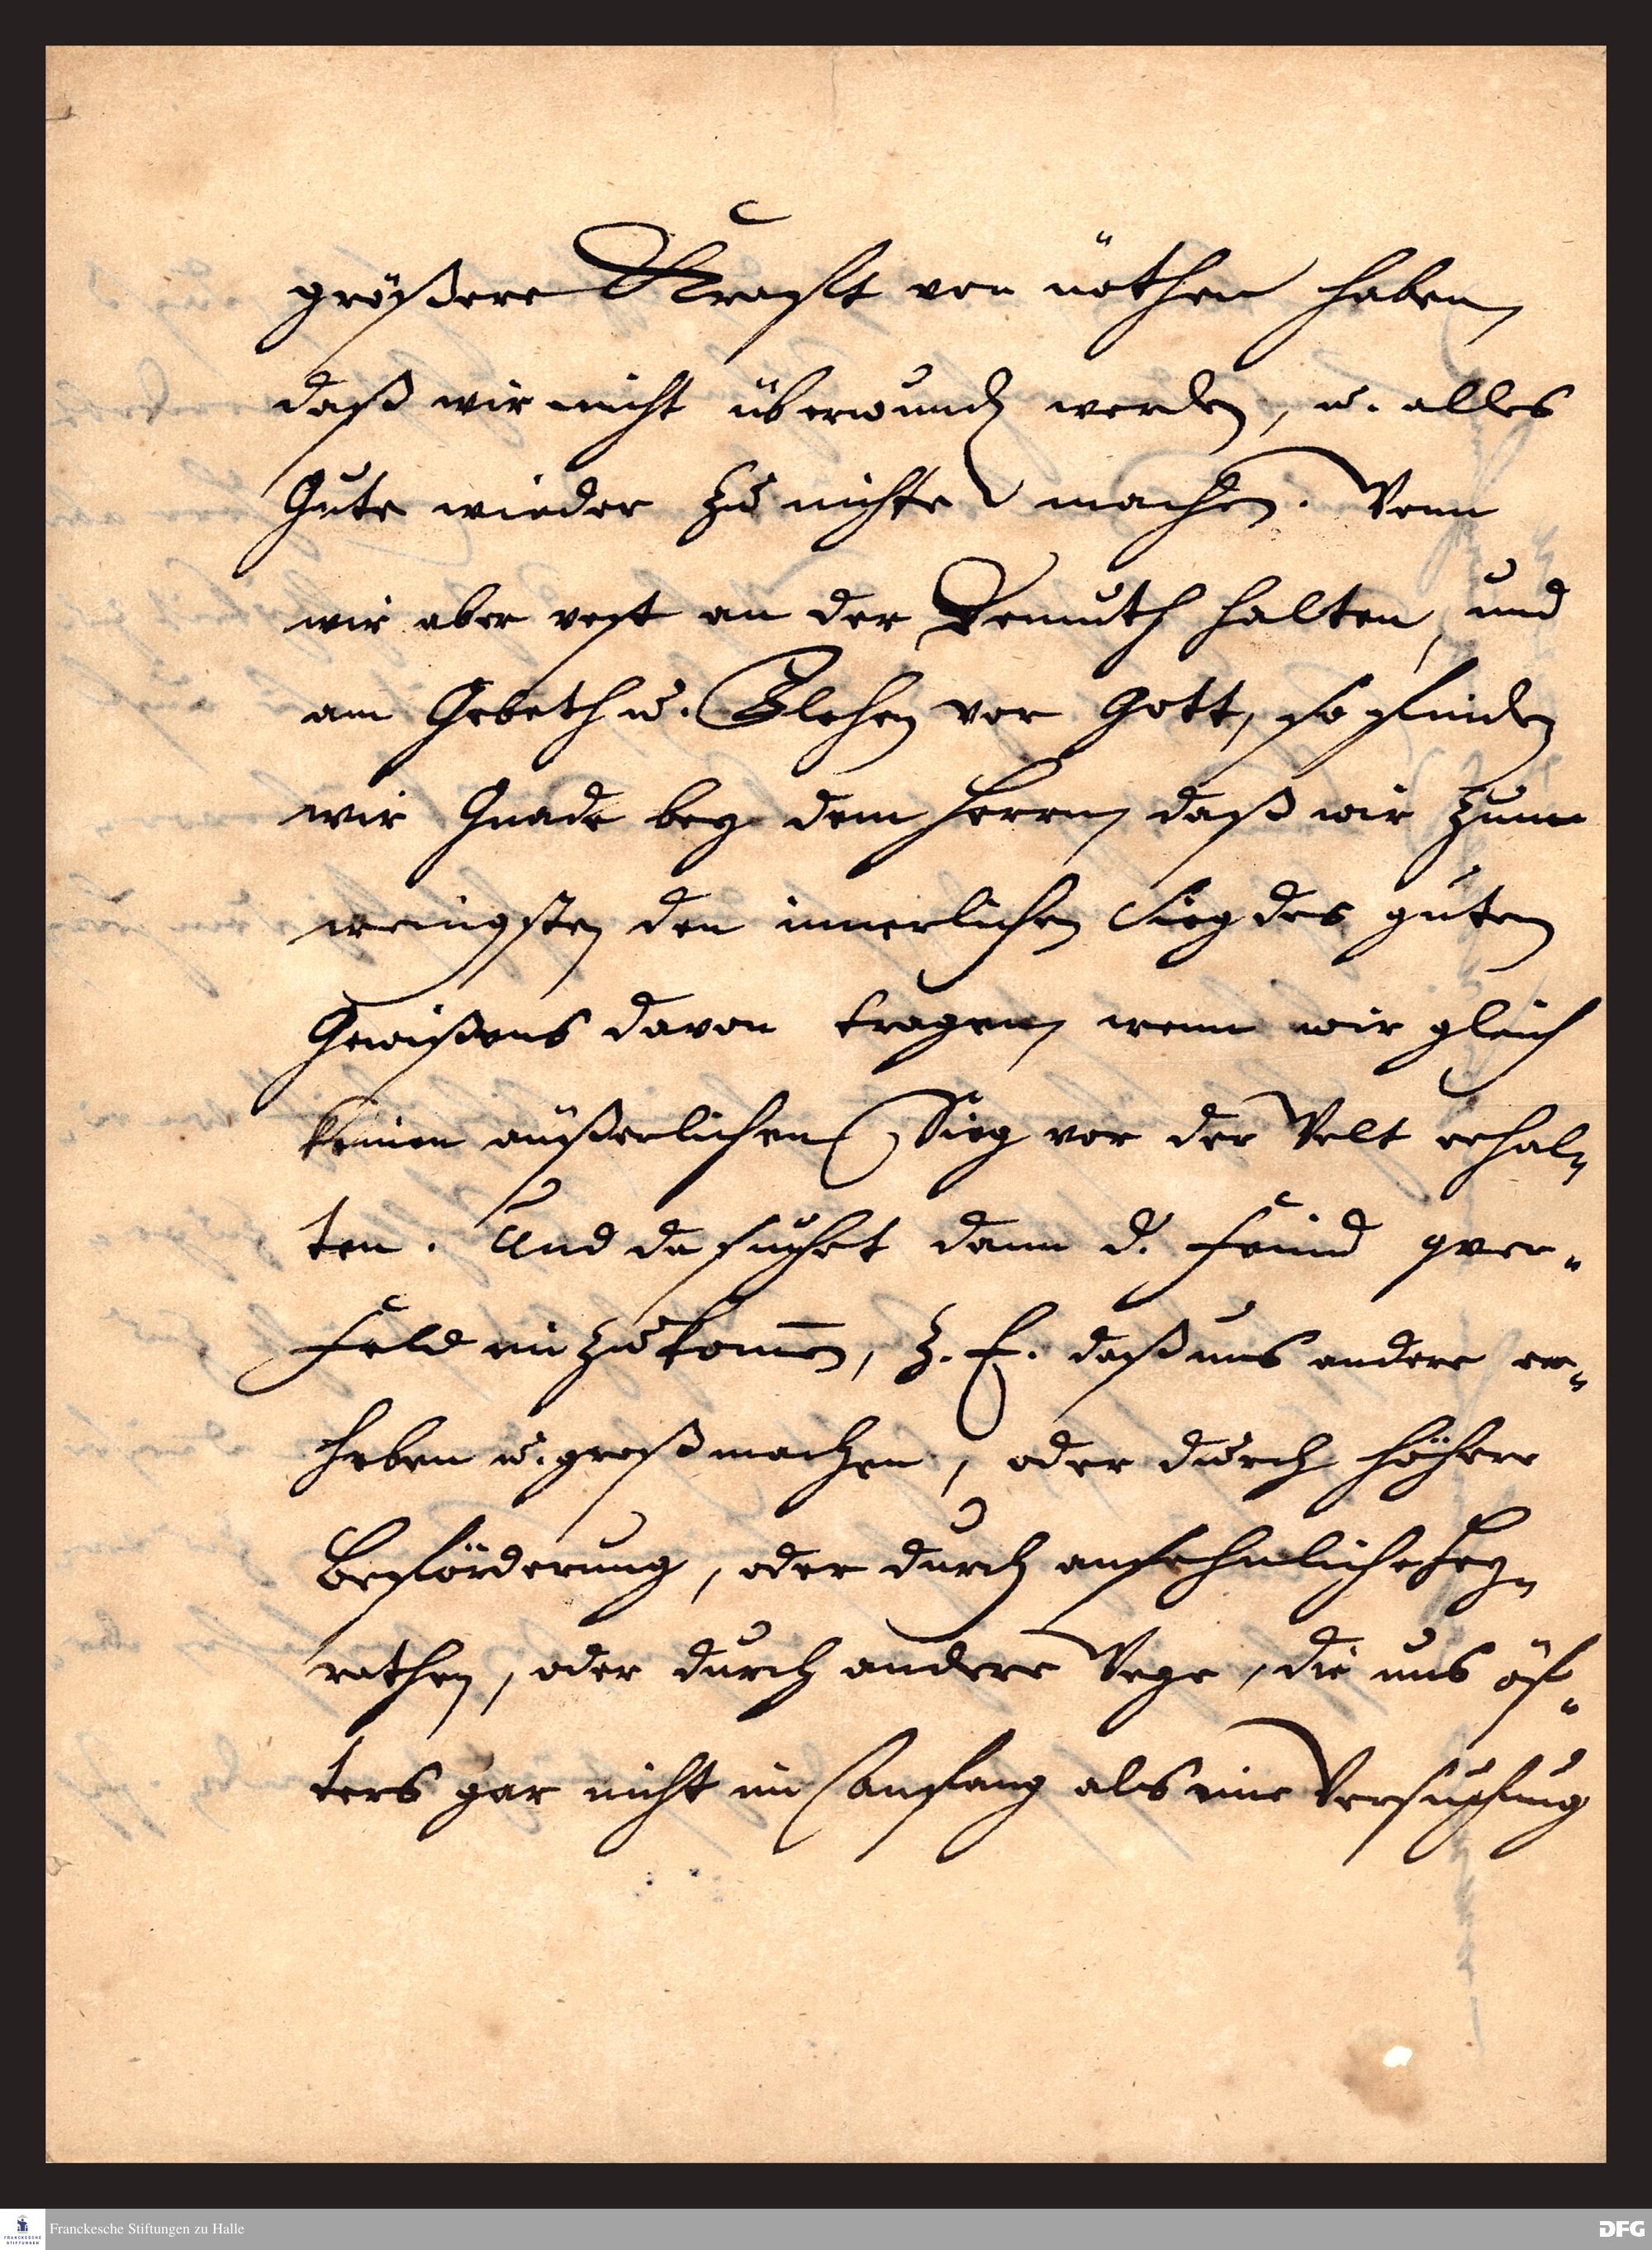 größere Krafft von nöthen haben
daß wir nicht überwunden werden, u. alles
Gute wieder zu nichte machen. Wenn
wir aber vest an der Demuth halten, und
am Gebeth u. Flehen vor Gott, so finden
wir Gnade bey dem Herrn, daß wir zum
wenigsten den innerlichen Sieg des guten
Gewißens davon tragen, wenn wir gleich
keinen äußerlichen Sieg vor der Welt erhal-
ten. Und da suchet dann d. Feind quer-
feld ein zu kom̅en, z. E. daß uns andere er-
heben u. groß machen, oder durch höhere
Beförderung, oder durch ansehnliche Hey-
rathen, oder durch andere Wege, die uns öf-
ters gar nicht im Anfang als eine Versuchung
Franckesche Stiftungen zu Halle
FRANCKESCHE
STIFTUNGEN
DFG